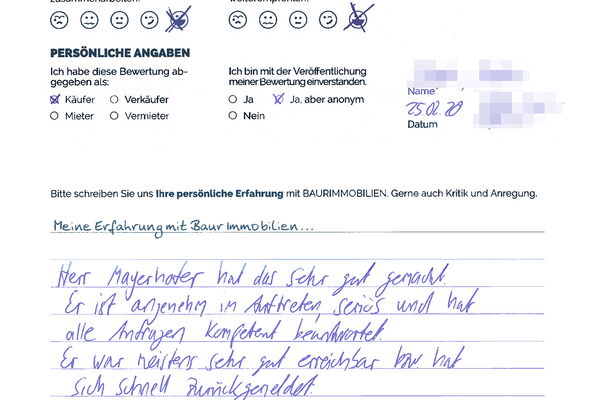 zusammenarbeiten?
weiterempfehlen?
PERSÖNLICHE ANGABEN
Ich habe diese Bewertung ab-
gegeben als:
Käufer Verkäufer
Mieter Vermieter
Ich bin mit der Veröffentlichung
meiner Bewertung einverstanden.
Ja Ja, aber anonym
Nein
Name
25.02.20
Datum
Bitte schreiben Sie uns Ihre persönliche Erfahrung mit BAURIMMOBILIEN. Gerne auch Kritik und Anregung.
Meine Erfahrung mit Baur Immobilien...
Herr Mayerhofer hat das sehr gut gemacht.
Er ist angenehm im Auftreten, seriös und hat
alle Anfragen kompetent beantwortet.
Er war meistens sehr gut erreichbar bzw hat
sich schnell zurückgemeldet.